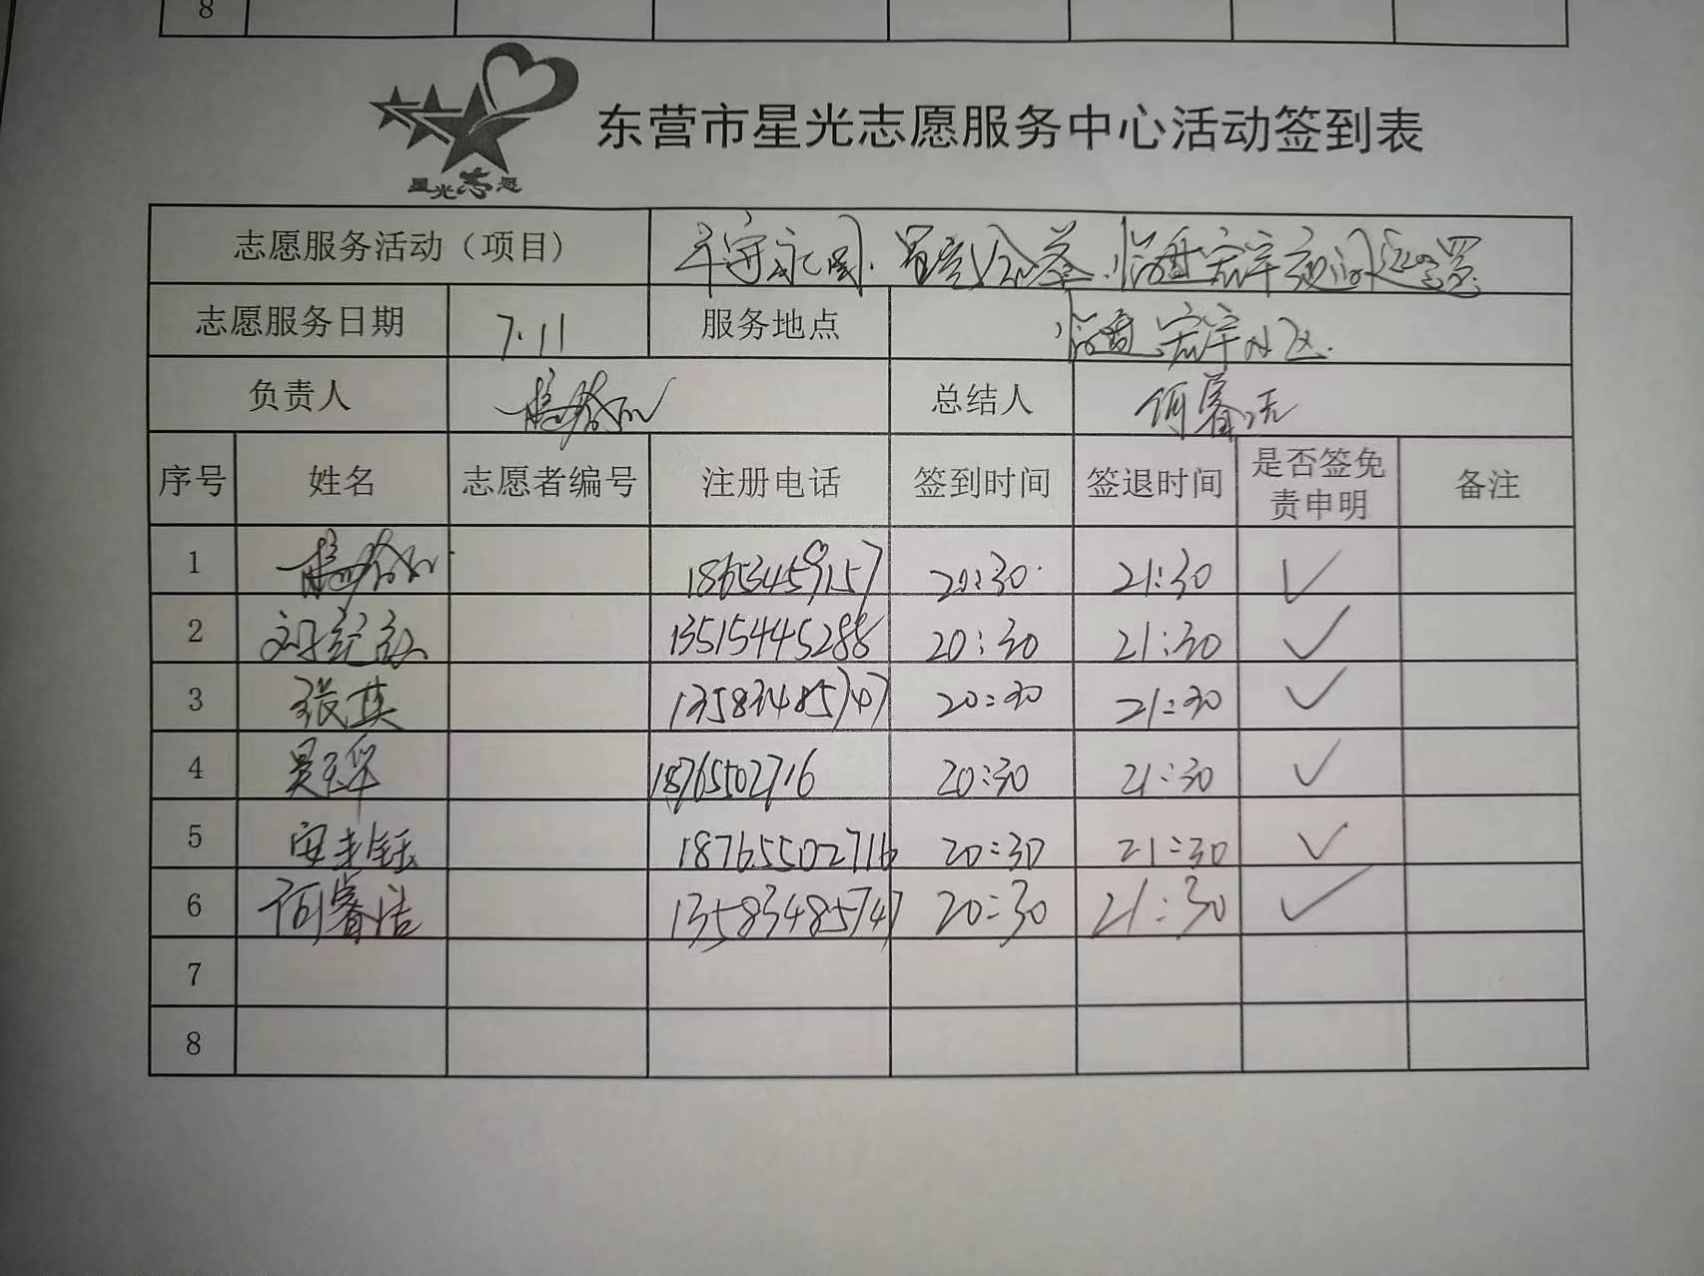 8
星光志愿
东营市星光志愿服务中心活动签到表
志愿服务活动（项目）
志愿服务日期 7.11 服务地点 临盘宏宇小区.
负责人 总结人 何睿洁
序号 姓名 志愿者编号 注册电话 签到时间 签退时间 是否签免责申明 备注
1 18653459157 20:30 21:30 ✓
2 13515445288 20:30 21:30 ✓
3 张英 13583485747 20:30 21:30 ✓
4 吴玉华 18765502716 20:30 21:30 ✓
5 18765502716 20:30 21:30 ✓
6 何睿洁 13583485747 20:30 21:30 ✓
7
8